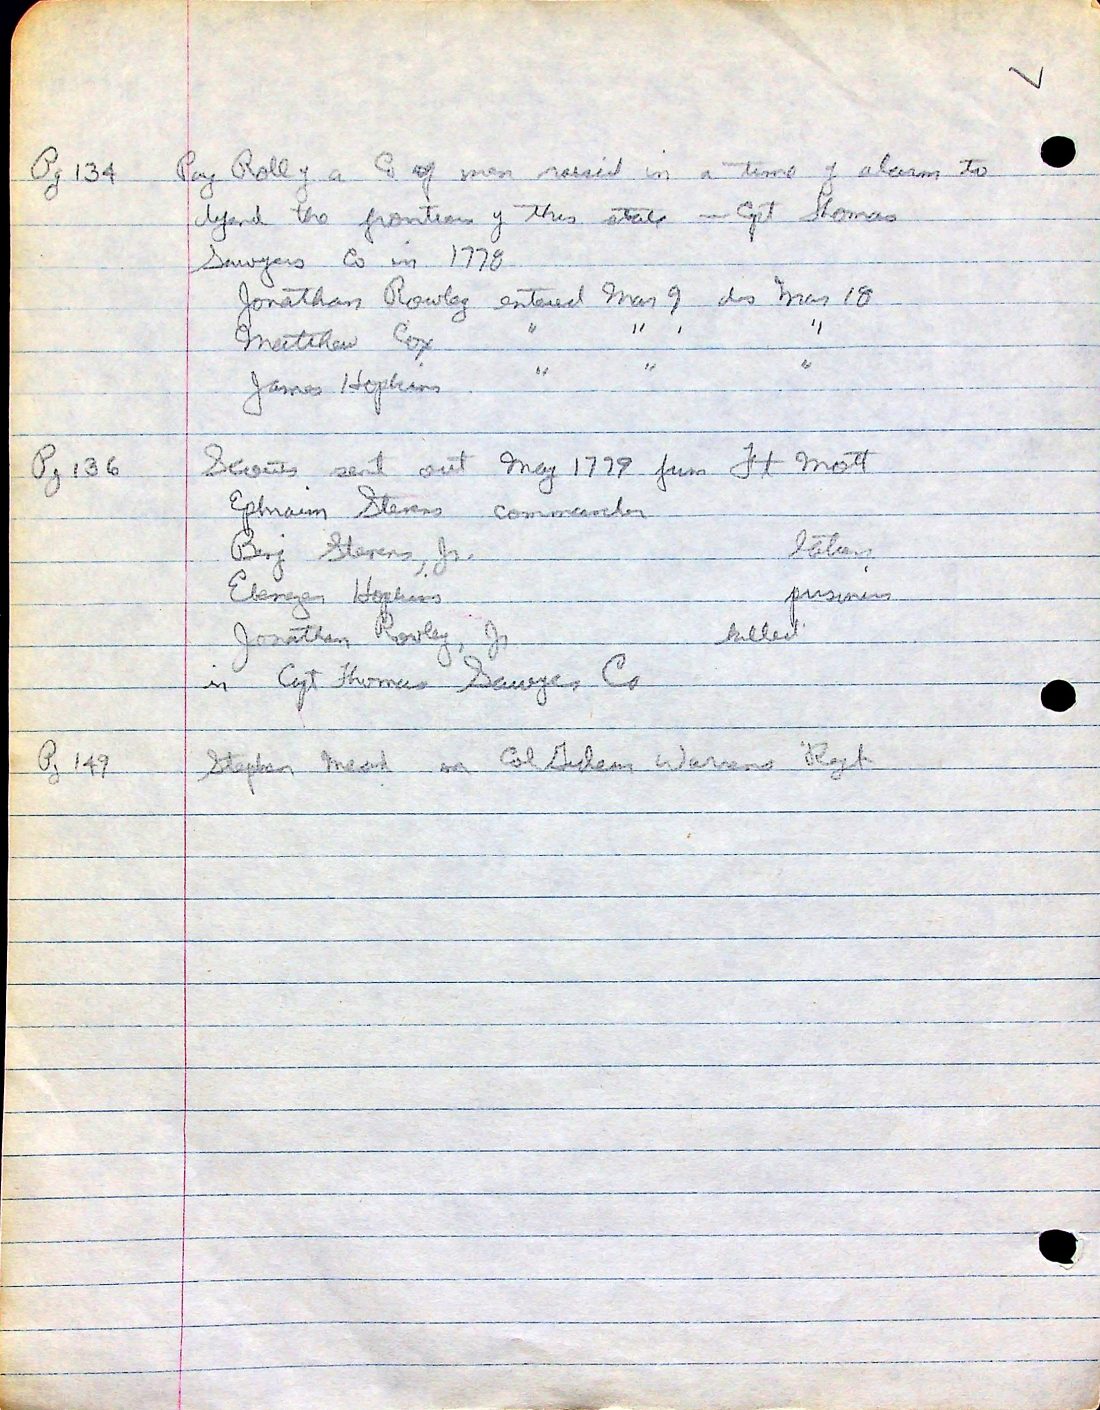 Pg 134 Pay Roll of a Co of men raised in a time of alarm to
defend the frontiers of this state — Cpt Thomas
Sawyers Co in 1778
Jonathan Rowley entered Mar 9 dis Mar 18
Matthew Cox " " "
James Hopkins " " "
Pg 136 Scouts sent out May 1779 from Ft Mott
Ephraim Stevens commander
Benj Stevens, Jr. taken
Ebenezer Hopkins prisoners
Jonathan Rowley, Jr killed
in Cpt Thomas Sawyers Co
Pg 149 Stephen Mead in Col Gideon Warrens Regt